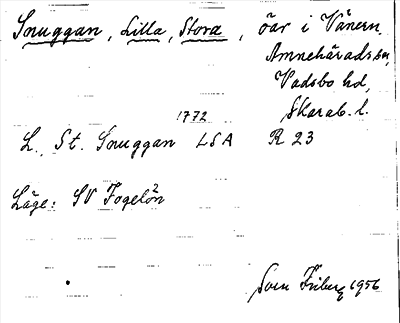 Snuggan, Lilla, Stora, öar i Vänern,
Amnehärads sn,
Vadsbo hd,
Skarab. l.
1772
L., St. Snuggan LSA R 23
Läge: SV Fogelön
Sven Friberg 1956